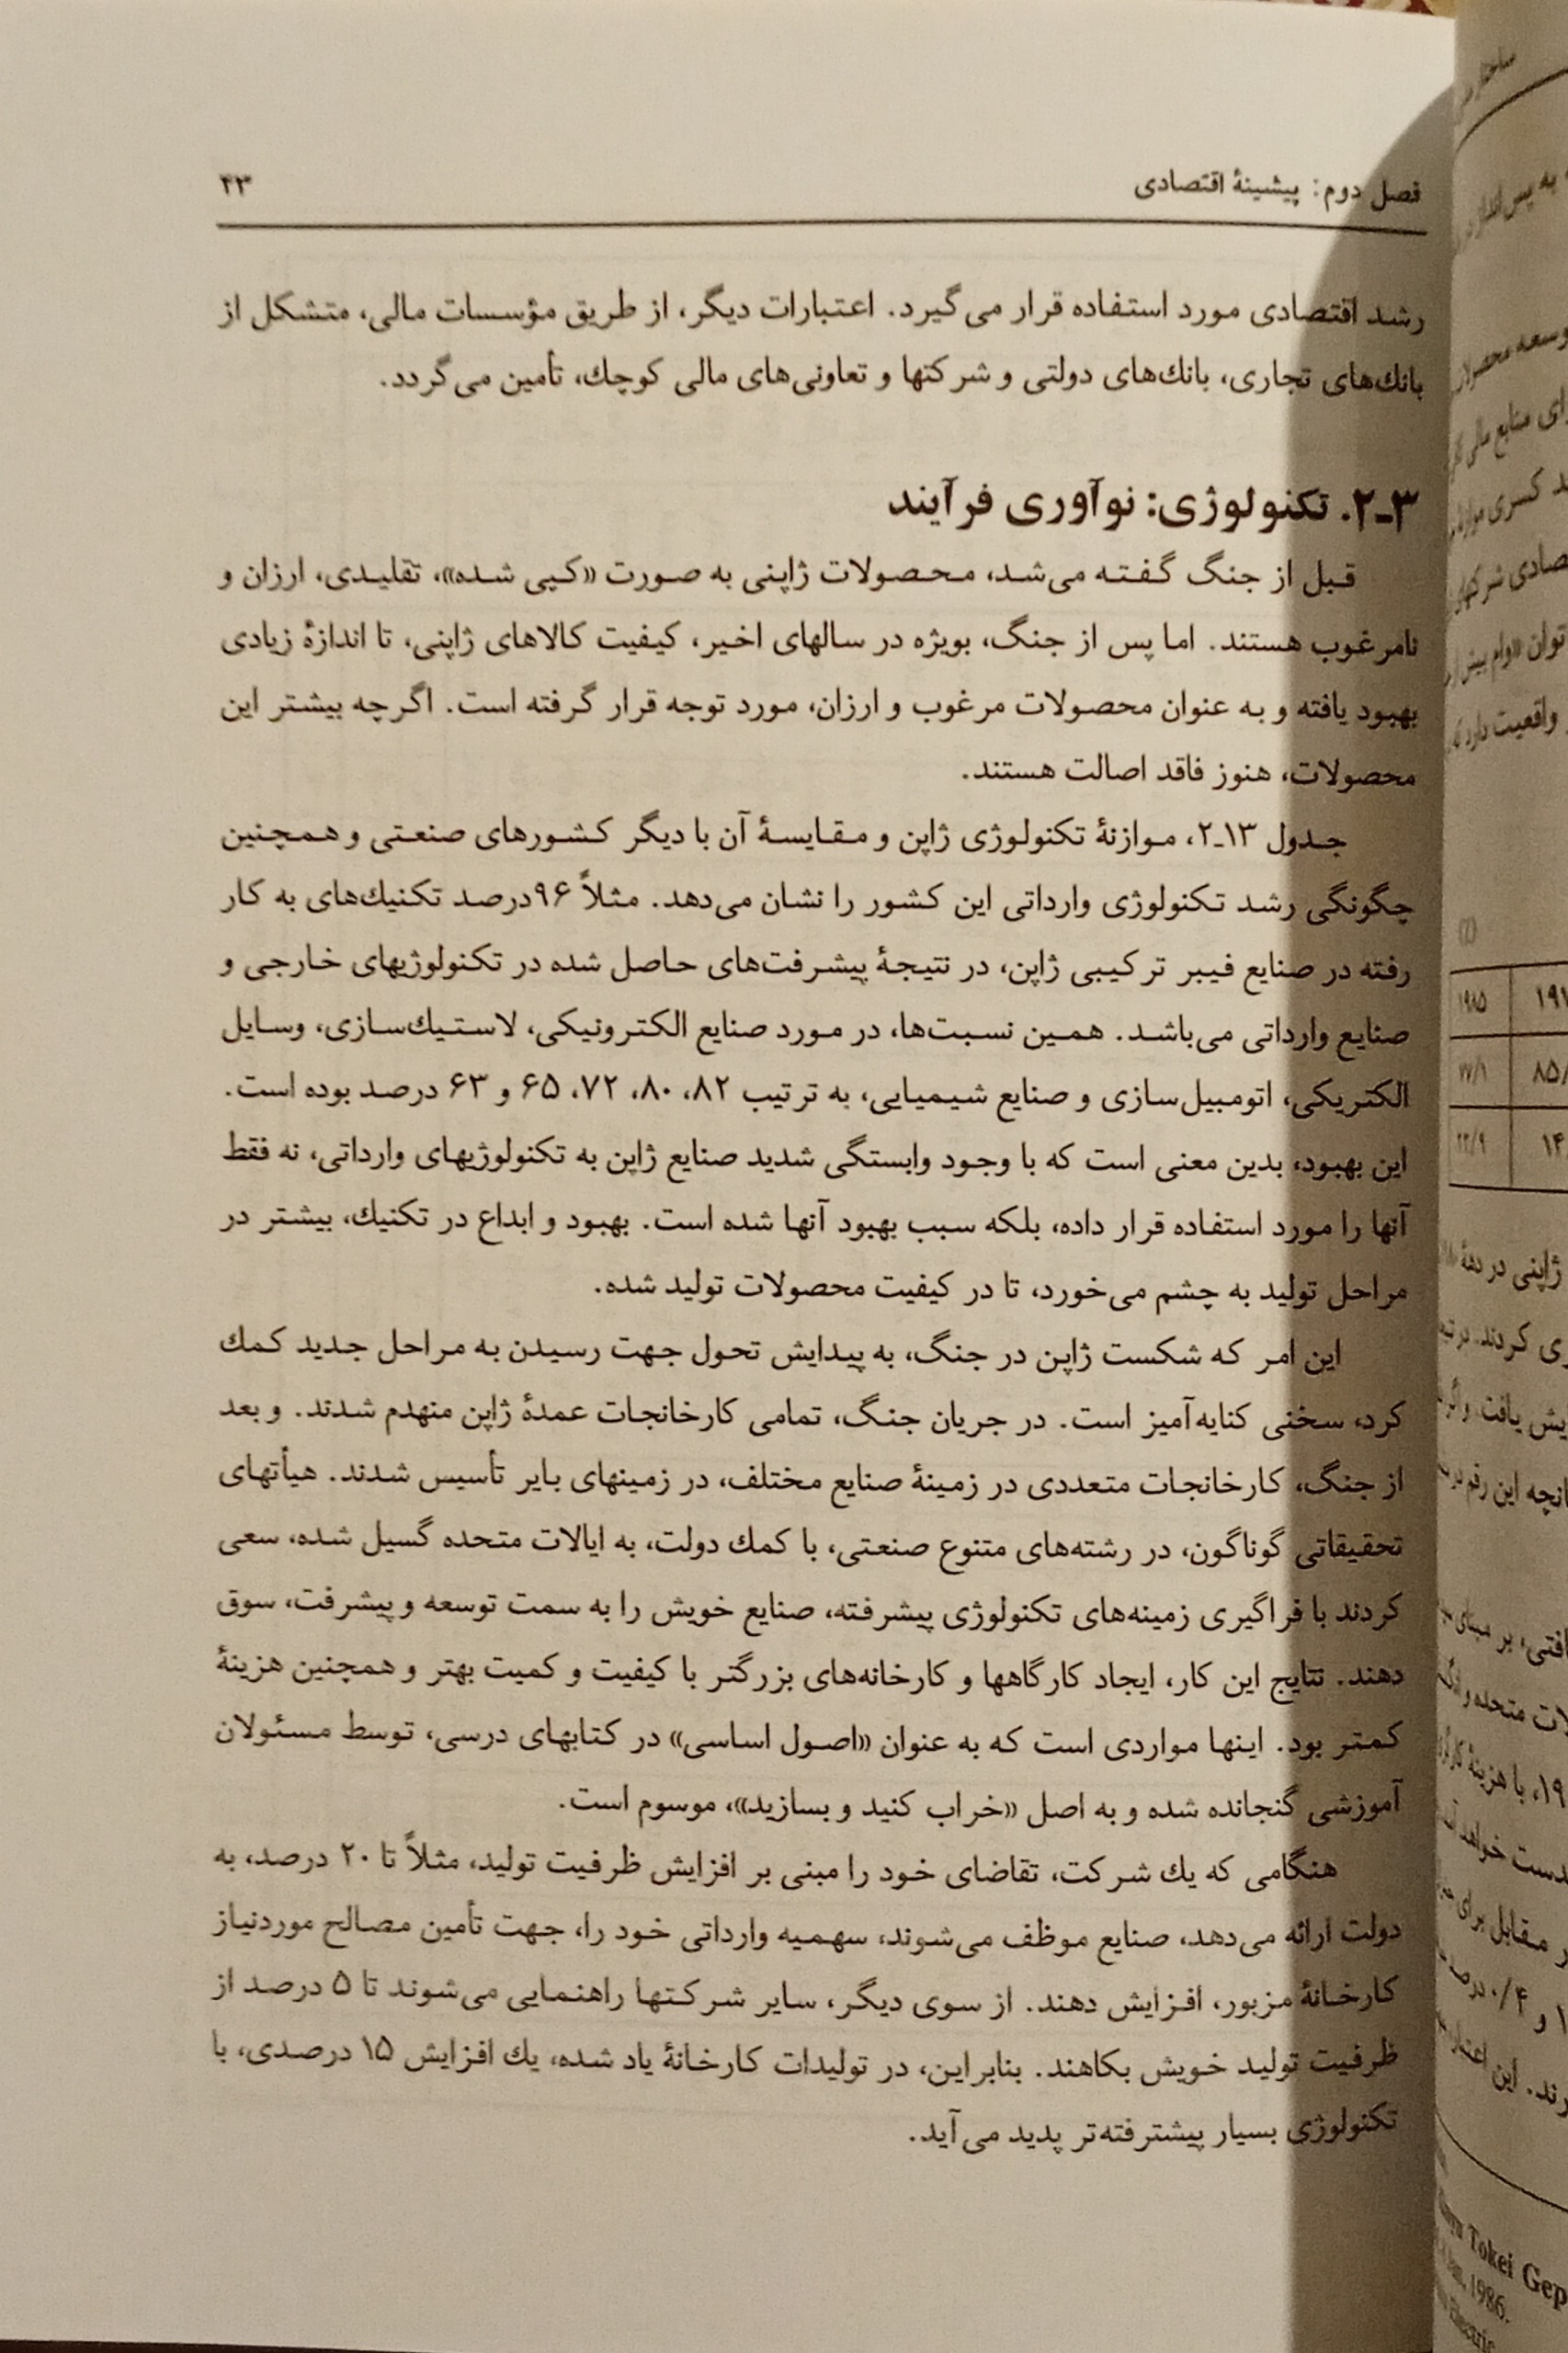 فصل دوم: پیشینهٔ اقتصادی
۴۳
رشد اقتصادی مورد استفاده قرار می‌گیرد. اعتبارات دیگر، از طریق مؤسسات مالی، متشکل از
بانك‌های تجاری، بانك‌های دولتی و شرکتها و تعاونی‌های مالی کوچك، تأمین می‌گردد.
۳ـ۲. تکنولوژی: نوآوری فرآیند
قبل از جنگ گفته می‌شد، محصولات ژاپنی به صورت «کپی شده»، تقلیدی، ارزان و
نامرغوب هستند. اما پس از جنگ، بویژه در سالهای اخیر، کیفیت کالاهای ژاپنی، تا اندازهٔ زیادی
بهبود یافته و به عنوان محصولات مرغوب و ارزان، مورد توجه قرار گرفته است. اگرچه بیشتر این
محصولات، هنوز فاقد اصالت هستند.
جدول ۱۳ـ۲، موازنهٔ تکنولوژی ژاپن و مقایسهٔ آن با دیگر کشورهای صنعتی و همچنین
چگونگی رشد تکنولوژی وارداتی این کشور را نشان می‌دهد. مثلاً ۹۶درصد تکنیك‌های به کار
رفته در صنایع فیبر ترکیبی ژاپن، در نتیجهٔ پیشرفت‌های حاصل شده در تکنولوژیهای خارجی و
صنایع وارداتی می‌باشد. همین نسبت‌ها، در مورد صنایع الکترونیکی، لاستیك‌سازی، وسایل
الکتریکی، اتومبیل‌سازی و صنایع شیمیایی، به ترتیب ۸۲، ۸۰، ۷۲، ۶۵ و ۶۳ درصد بوده است.
این بهبود، بدین معنی است که با وجود وابستگی شدید صنایع ژاپن به تکنولوژیهای وارداتی، نه فقط
آنها را مورد استفاده قرار داده، بلکه سبب بهبود آنها شده است. بهبود و ابداع در تکنیك، بیشتر در
مراحل تولید به چشم می‌خورد، تا در کیفیت محصولات تولید شده.
این امر که شکست ژاپن در جنگ، به پیدایش تحول جهت رسیدن به مراحل جدید کمك
کرد، سخنی کنایه‌آمیز است. در جریان جنگ، تمامی کارخانجات عمدهٔ ژاپن منهدم شدند. و بعد
از جنگ، کارخانجات متعددی در زمینهٔ صنایع مختلف، در زمینهای بایر تأسیس شدند. هیأتهای
تحقیقاتی گوناگون، در رشته‌های متنوع صنعتی، با کمك دولت، به ایالات متحده گسیل شده، سعی
کردند با فراگیری زمینه‌های تکنولوژی پیشرفته، صنایع خویش را به سمت توسعه و پیشرفت، سوق
دهند. نتایج این کار، ایجاد کارگاهها و کارخانه‌های بزرگتر با کیفیت و کمیت بهتر و همچنین هزینهٔ
کمتر بود. اینها مواردی است که به عنوان «اصول اساسی» در کتابهای درسی، توسط مسئولان
آموزشی گنجانده شده و به اصل «خراب کنید و بسازید»، موسوم است.
هنگامی که یك شرکت، تقاضای خود را مبنی بر افزایش ظرفیت تولید، مثلاً تا ۲۰ درصد، به
دولت ارائه می‌دهد، صنایع موظف می‌شوند، سهمیه وارداتی خود را، جهت تأمین مصالح موردنیاز
کارخانهٔ مزبور، افزایش دهند. از سوی دیگر، سایر شرکتها راهنمایی می‌شوند تا ۵ درصد از
ظرفیت تولید خویش بکاهند. بنابراین، در تولیدات کارخانهٔ یاد شده، یك افزایش ۱۵ درصدی، با
تکنولوژی بسیار پیشترفته‌تر پدید می‌آید.